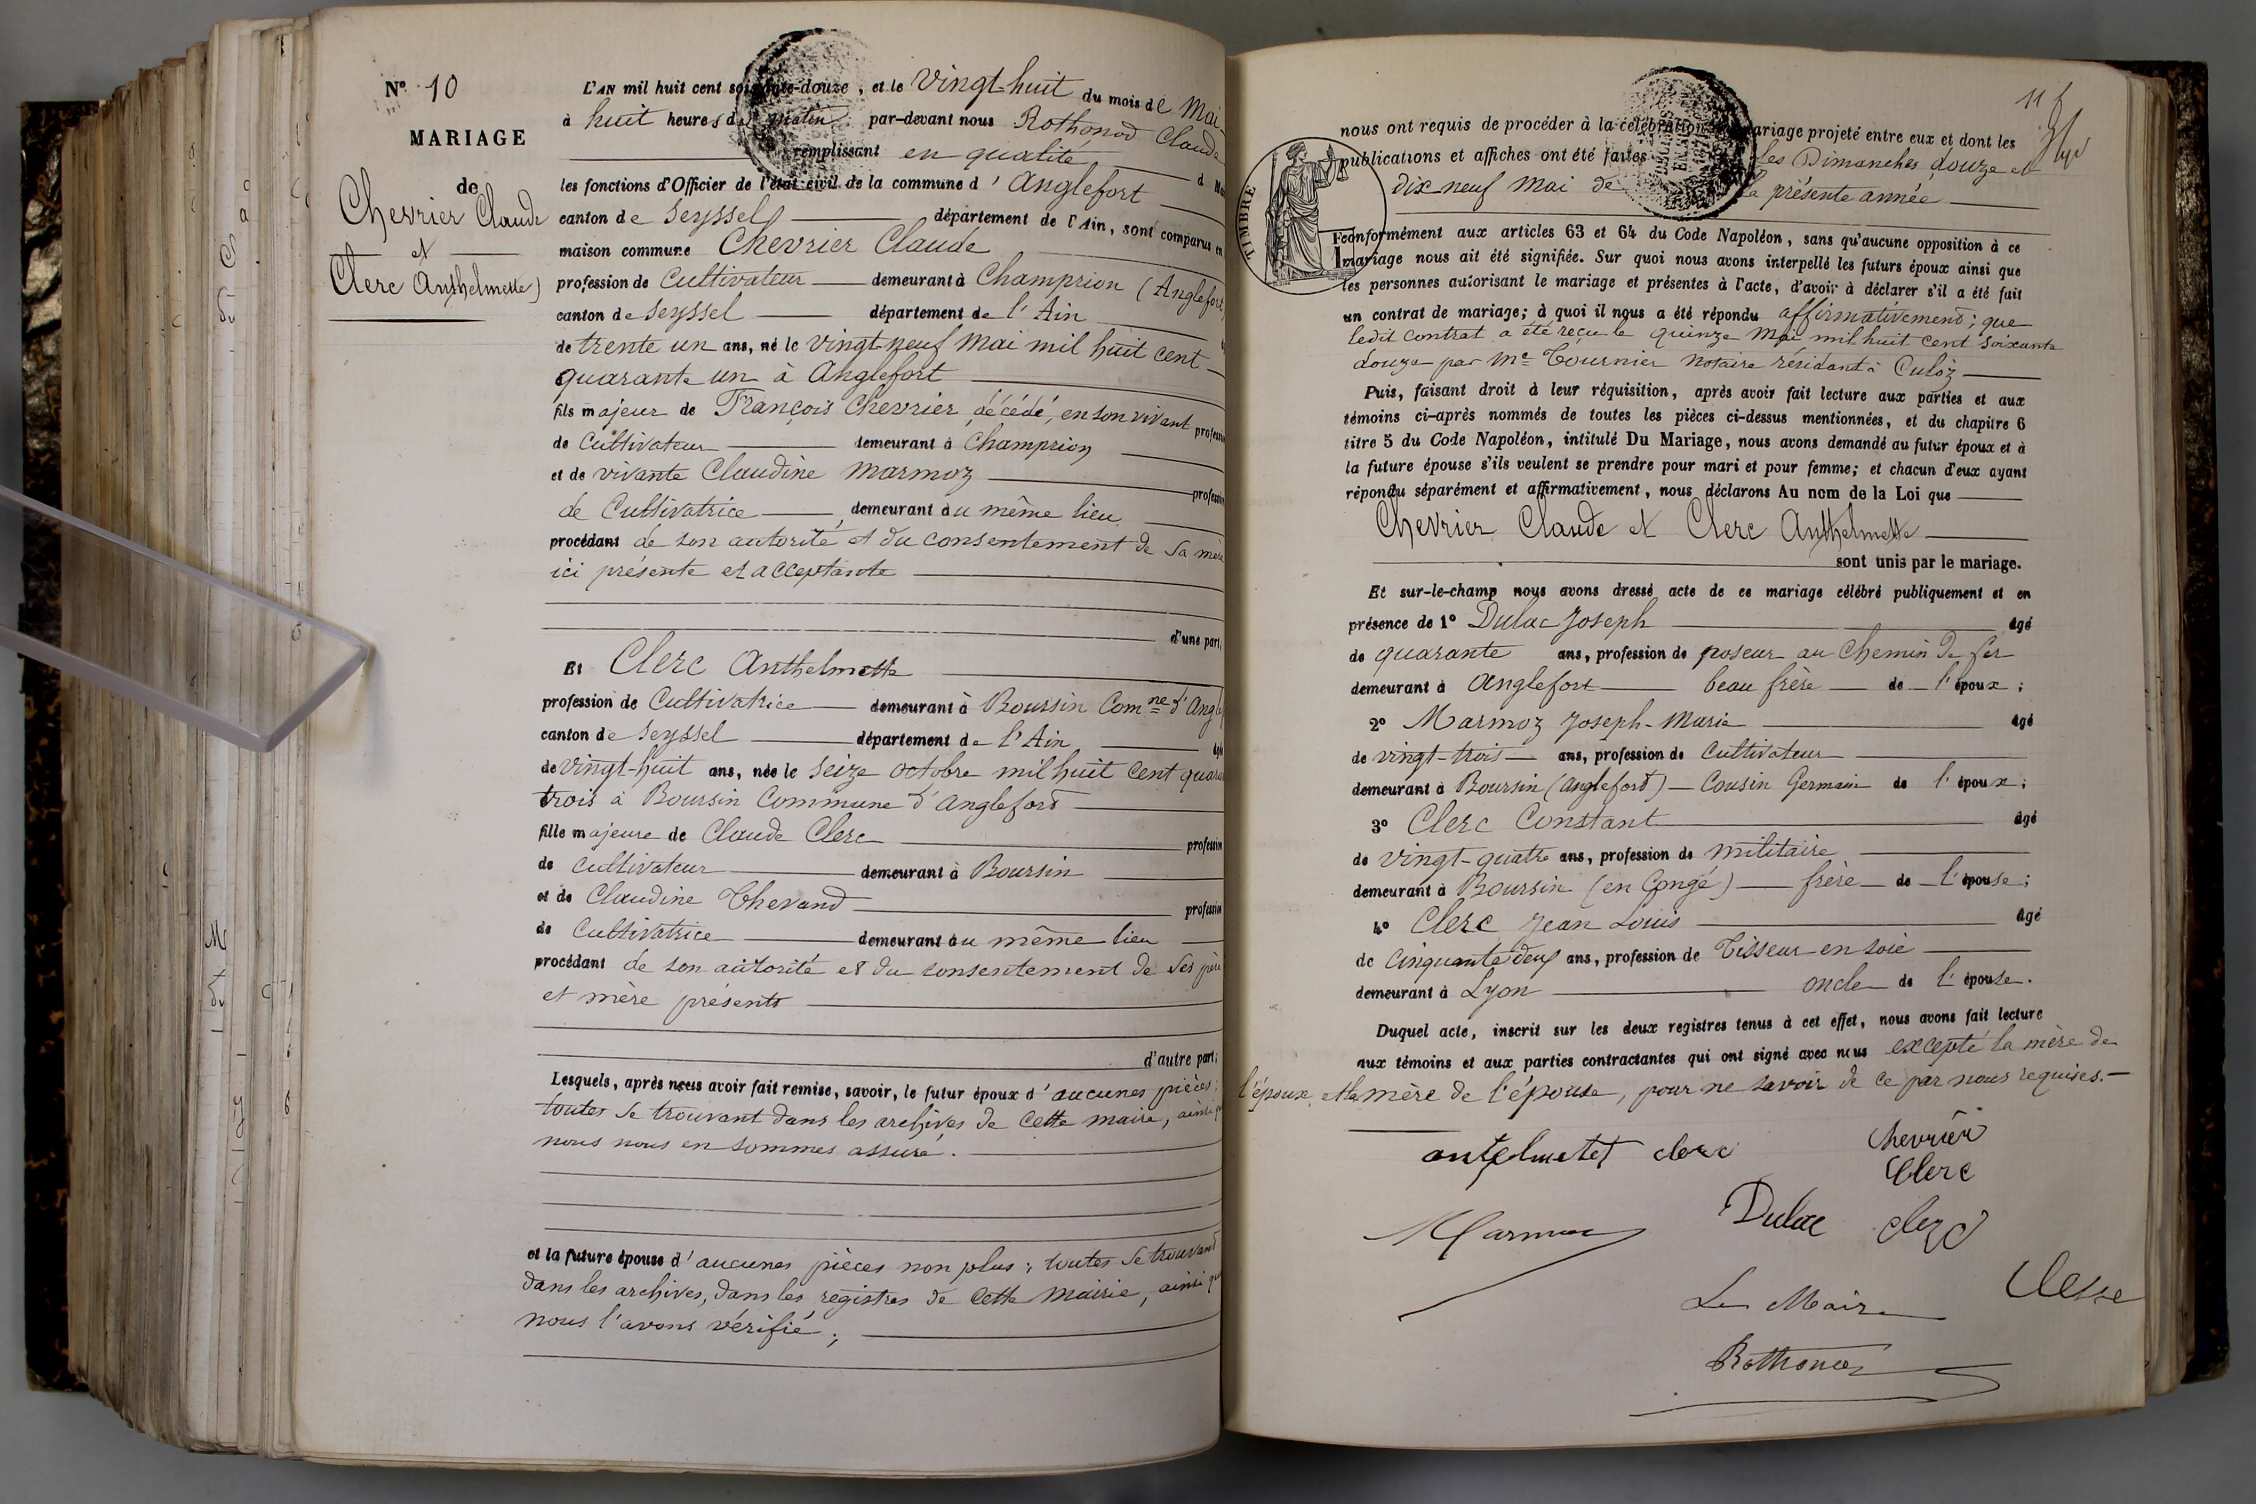 N° 10
MARIAGE
de
Chevrier Claude
et
Clerc Anthelmette
L'AN mil huit cent soixante-douze, et le vingt-huit du mois de Mai
à huit heures du matin par-devant nous Rothonod Claude
remplissant en qualité d
les fonctions d'Officier de l'état civil de la commune d'Anglefort
canton de Seyssel département de l'Ain, sont comparus en
maison commune Chevrier Claude
profession de Cultivateur demeurant à Champrion (Anglefort
canton de Seyssel département de l'Ain
de trente un ans, né le vingt-neuf Mai mil huit cent
quarante un à Anglefort
fils majeur de François Chevrier, décédé, en son vivant profession
de Cultivateur demeurant à Champrion
et de vivante Claudine Marmoz profession
de Cultivatrice demeurant au même lieu
procédant de son autorité et du consentement de sa mère
ici présente et acceptante
d'une part,
Et Clerc Anthelmette
profession de Cultivatrice demeurant à Boursin Comne d'Angle
canton de Seyssel département de l'Ain
de vingt-huit ans, née le seize octobre mil huit cent quara
trois à Boursin Commune d'Anglefort
fille majeure de Claude Clerc profession
de cultivateur demeurant à Boursin
et de Claudine Thevand profession
de Cultivatrice demeurant au même lieu
procédant de son autorité et du consentement de ses père
et mère présents
d'autre part;
Lesquels, après nous avoir fait remise, savoir, le futur époux d'aucunes pièces;
toutes se trouvant dans les archives de cette mairie, ainsi que
nous nous en sommes assuré.
et la future épouse d'aucunes pièces non plus; toutes se trouvant
dans les archives, dans les registres de cette Mairie, ainsi que
nous l'avons vérifié;
11
nous ont requis de procéder à la célébration mariage projeté entre eux et dont les
publications et affiches ont été faites les Dimanches douze et
dix neuf Mai de la présente année
TIMBRE
conformément aux articles 63 et 64 du Code Napoléon, sans qu'aucune opposition à ce
mariage nous ait été signifiée. Sur quoi nous avons interpellé les futurs époux ainsi que
les personnes autorisant le mariage et présentes à l'acte, d'avoir à déclarer s'il a été fait
un contrat de mariage; à quoi il nous a été répondu affirmativement; que
ledit contrat a été reçu le quinze Mai mil huit cent soixante
douze par Me Tournier notaire résidant à Culoz
Puis, faisant droit à leur réquisition, après avoir fait lecture aux parties et aux
témoins ci-après nommés de toutes les pièces ci-dessus mentionnées, et du chapitre 6
titre 5 du Code Napoléon, intitulé Du Mariage, nous avons demandé au futur époux et à
la future épouse s'ils veulent se prendre pour mari et pour femme; et chacun d'eux ayant
répondu séparément et affirmativement, nous déclarons Au nom de la Loi que
Chevrier Claude et Clerc Anthelmette
sont unis par le mariage.
Et sur-le-champ nous avons dressé acte de ce mariage célébré publiquement et en
présence de 1° Dulac Joseph âgé
de quarante ans, profession de poseur au Chemin de fer
demeurant à Anglefort beau frère de l'époux;
2° Marmoz Joseph-Marie âgé
de vingt-trois ans, profession de Cultivateur
demeurant à Boursin (Anglefort) Cousin Germain de l'époux;
3° Clerc Constant âgé
de vingt-quatre ans, profession de militaire
demeurant à Boursin (en Congé) frère de l'épouse;
4° Clerc Jean Louis âgé
de cinquante deux ans, profession de Tisseur en soie
demeurant à Lyon oncle de l'épouse.
Duquel acte, inscrit sur les deux registres tenus à cet effet, nous avons fait lecture
aux témoins et aux parties contractantes qui ont signé avec nous excepté la mère de
l'époux et la mère de l'épouse, pour ne savoir de ce par nous requises.
antelmetet clerc Chevrier
Clerc
Marmoz Dulac clerc
Le Maire
Rothonod